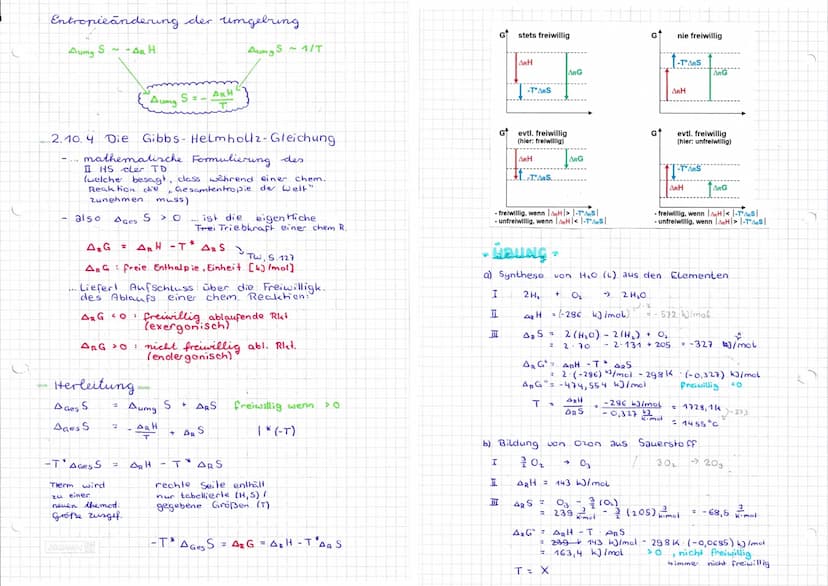 Entropieänderung der Umgebung
Δumg S ~ -ΔRH
Δumg S ~ 1/T
Δumg S = - ΔRH / T
2.10.4 Die Gibbs-Helmholtz-Gleichung
-... mathematische Formulierung des
II HS der TD
(welche besagt, dass während einer chem.
Reaktion die „Gesamtentropie der Welt"
zunehmen muss)
- also ΔGes S > 0 ... ist die eigentliche
Triebkraft einer chem R.
ΔRG = ΔRH - T* ΔRS
TW, S. 127
ΔRG : freie Enthalpie, Einheit [kJ/mol]
... Liefert Aufschluss über die Freiwilligk.
des Ablaufs einer chem. Reaktion:
ΔRG < 0 : freiwillig ablaufende Rkt
(exergonisch)
ΔRG > 0 : nicht freiwillig abl. Rkt.
(endergonisch)
- Herleitung -
ΔGes S = Δumg S + ΔRS freiwillig wenn > 0
ΔGes S = - ΔRH / T + ΔRS | * (-T)
-T* ΔGes S = ΔRH - T* ΔRS
Term wird
zu einer
neuen themod.
Größe zusgef.
rechte Seite enthält
nur tabellierte (H,S) /
gegebene Größen (T)
-T* ΔGes S = ΔRG = ΔRH - T* ΔRS
G stets freiwillig
ΔRH
-T*ΔRS
ΔRG
G nie freiwillig
-T*ΔRS
ΔRG
ΔRH
G evtl. freiwillig
(hier: freiwillig)
ΔRH
ΔRG
-T*ΔRS
- freiwillig, wenn |ΔRH| > |-T*ΔRS|
- unfreiwillig, wenn |ΔRH| < |-T*ΔRS|
G evtl. freiwillig
(hier: unfreiwillig)
-T*ΔRS
ΔRH
ΔRG
- freiwillig, wenn |ΔRH| < |-T*ΔRS|
- unfreiwillig, wenn |ΔRH| > |-T*ΔRS|
- ÜBUNG -
a) Synthese von H2O (l) aus den Elementen
I 2H2 + O2 → 2H2O
II ΔRH = (-286 kJ/mol) ·2 = -572 kJ/mol
III ΔRS = 2(H2O) - 2(H2) + O2
= 2·70 - 2·131 + 205 = -327 kJ/mol
ΔRG° = ΔRH - T* ΔRS
= 2·(-286) kJ/mol - 298K · (-0,327) kJ/mol
ΔRG° = -474,554 kJ/mol freiwillig <0
T = ΔRH / ΔRS = -286 kJ/mol / -0,327 kJ/K·mol = 1728,1K
= 1455°C
-273
b) Bildung von Ozon aus Sauerstoff
I 3/2 O2 → O3 / 3O2 → 2O3
II ΔRH = 143 kJ/mol
III ΔRS = O3 - 3/2 (O2)
= 239 J/K·mol - 3/2 (205) J/K·mol = -68,5 J/K·mol
ΔRG° = ΔRH - T · ΔRS
= 143 kJ/mol - 298K · (-0,0685) kJ/mol
= 163,4 kJ/mol >0, nicht freiwillig
↳ immer nicht freiwillig
T = X